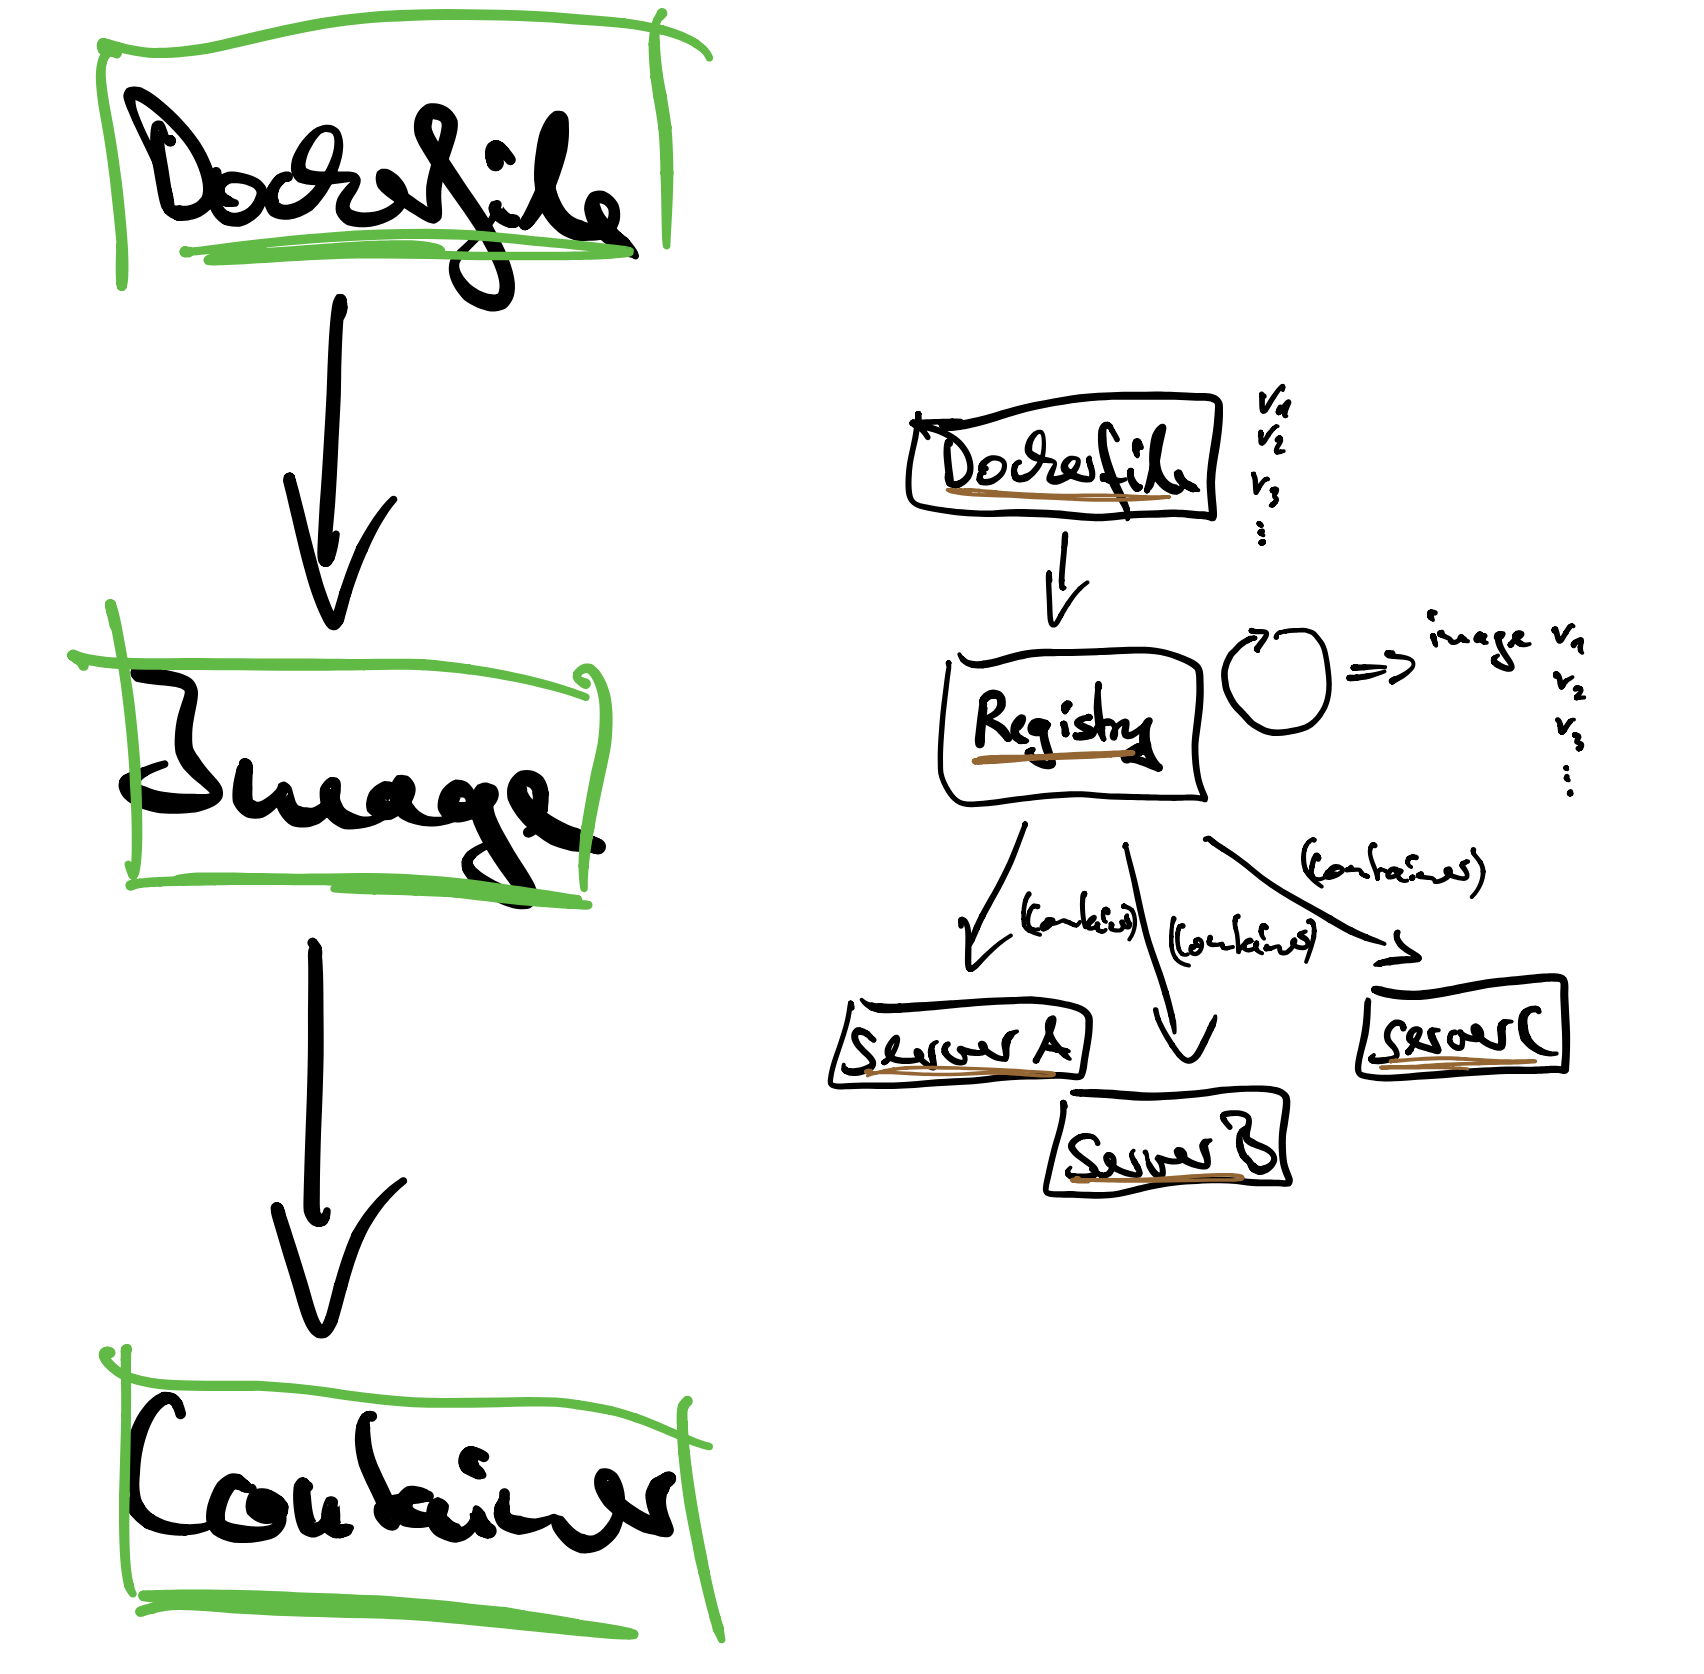 Dockerfile
Image
Container
Dockerfile
v1
v2
v3
⋮
Registry
image v1
v2
v3
⋮
(container)
(container)
(container)
Server A
Server B
Server C